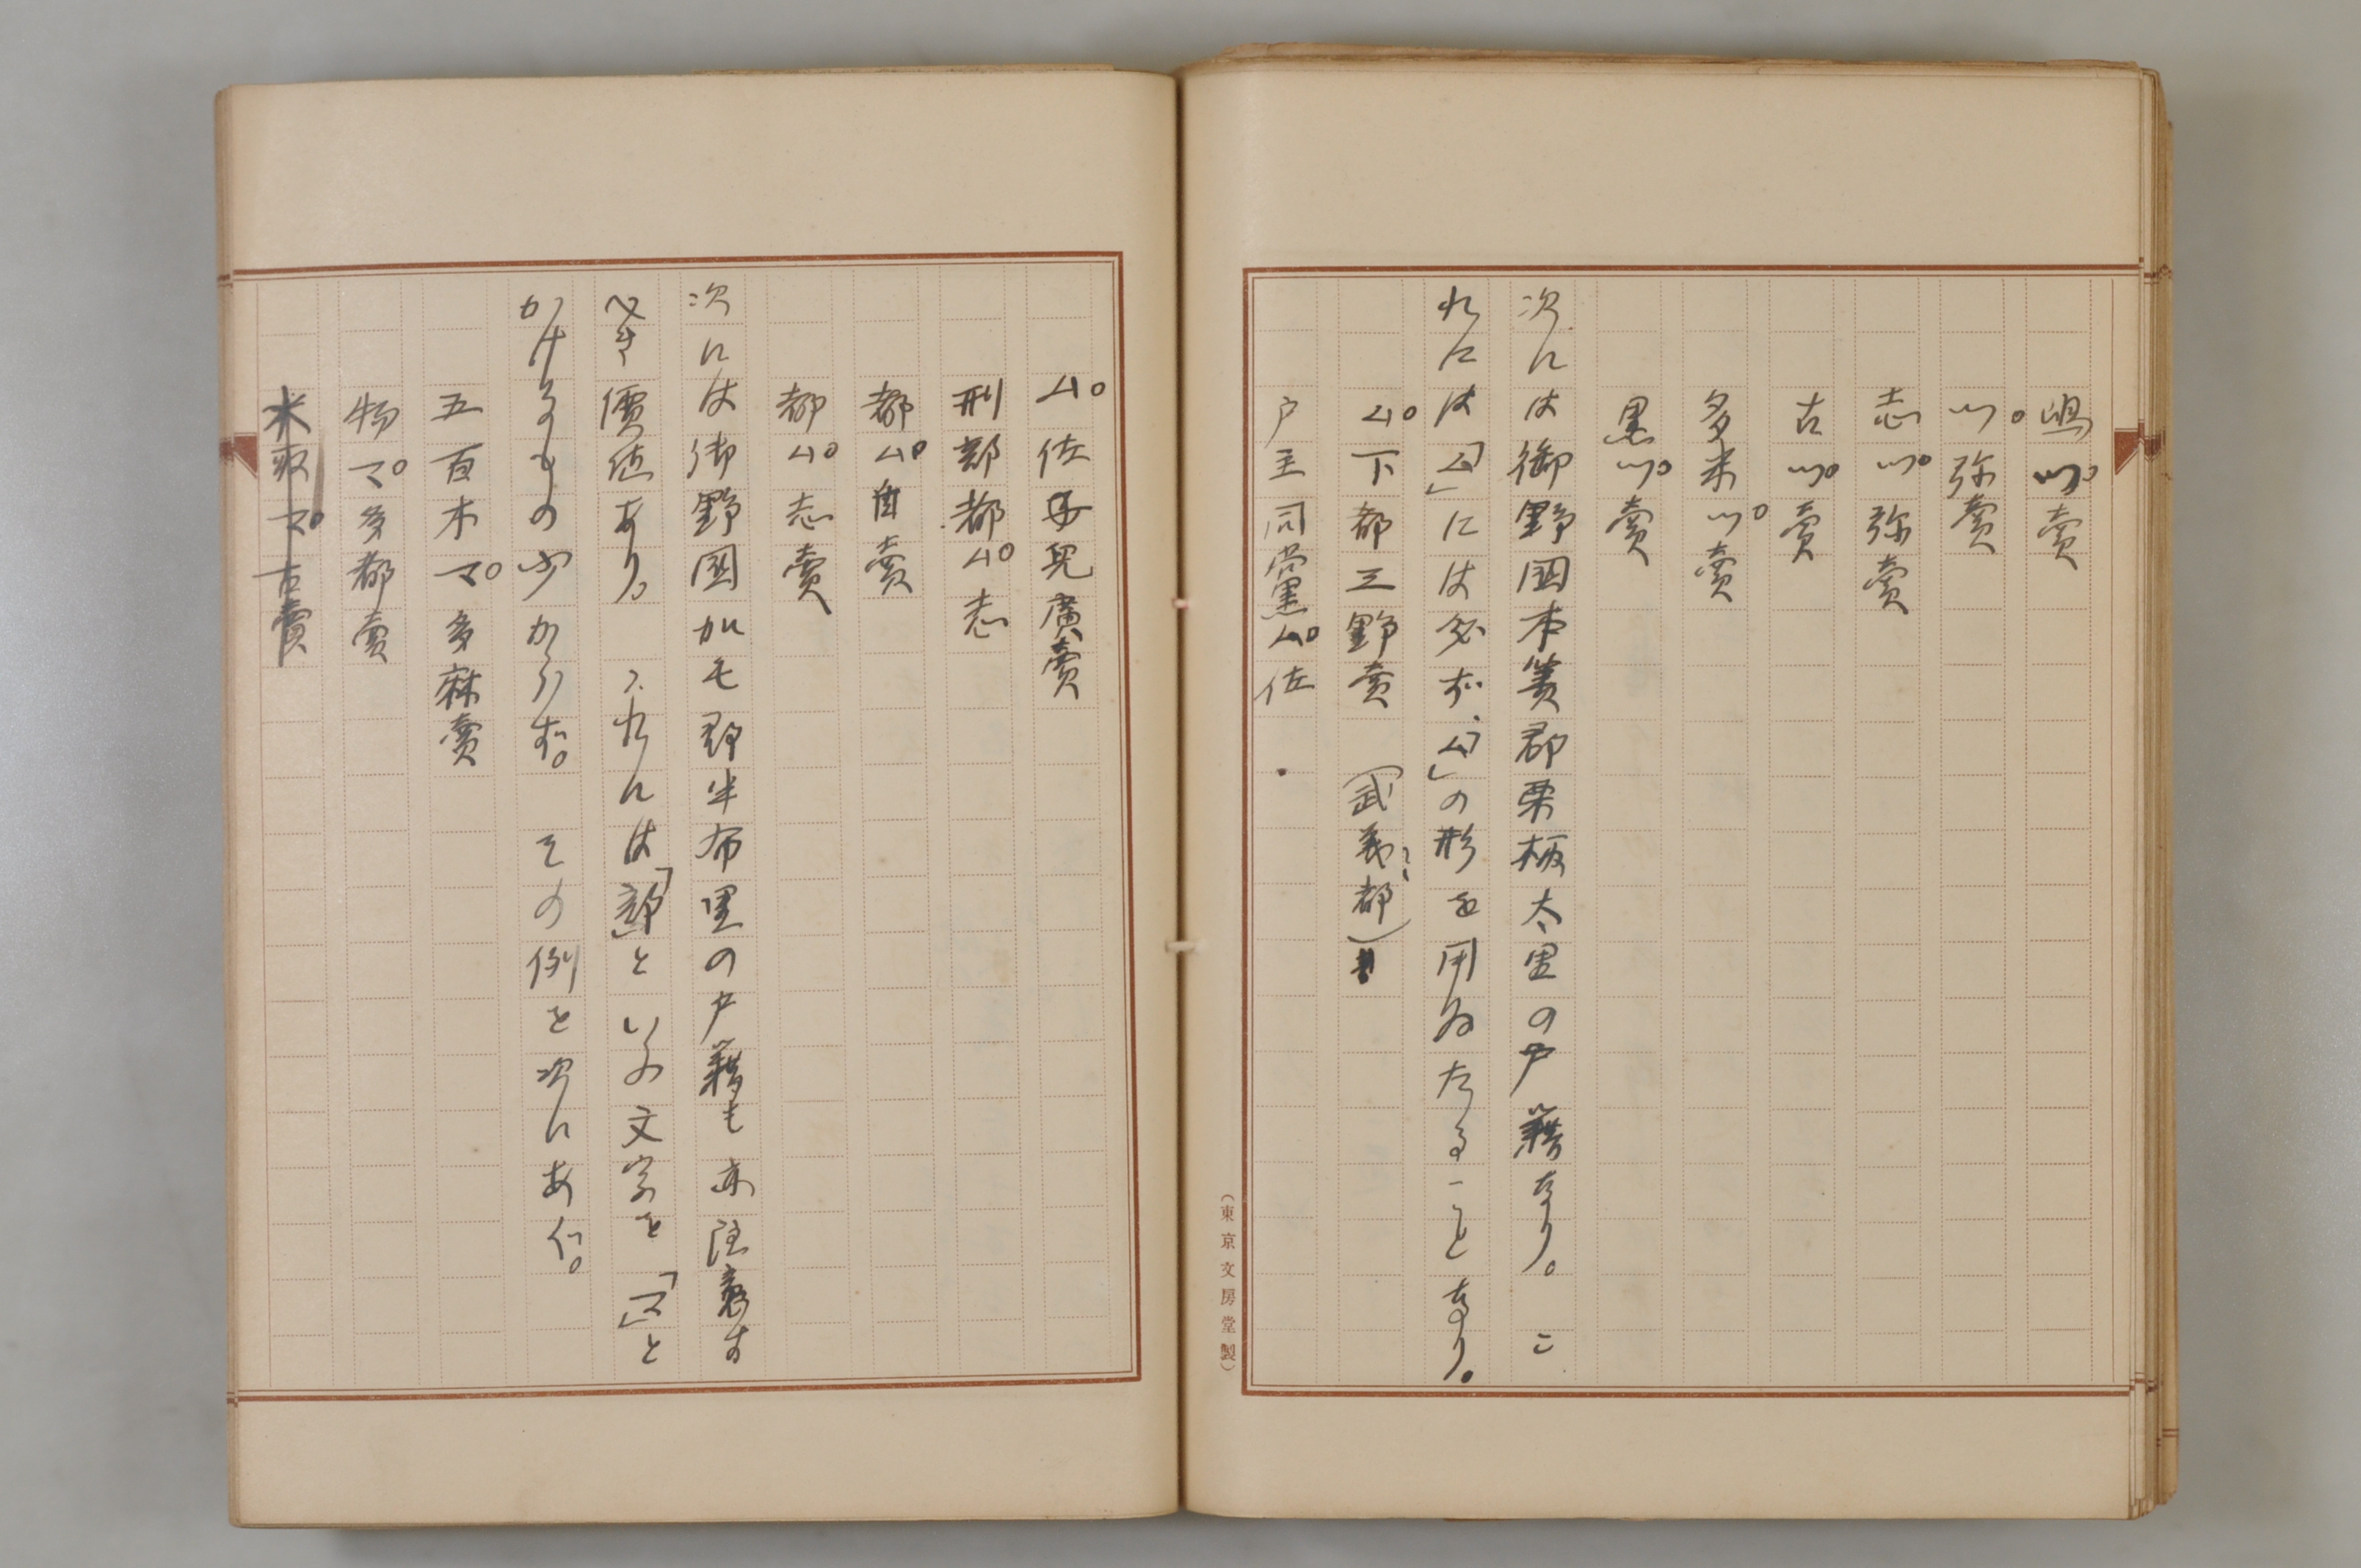 嶋ツ。賣
ツ。弥賣
志ツ。弥賣
古ツ。賣
多米ツ。賣
黒ツ。賣
次には御野國本簀郡栗栖太里の戸籍なり。こ
れには「ム」には必ず、「ム」の形を用ゐたることなり。
ム。下都三野賣（武義都）
戸主同黨ム。佐
（東京文房堂製）
ム。佐 兒廣賣
刑部都ム。志
都ム。自賣
都ム。志賣
次には御野國加毛郡半布里の戸籍も亦注意す
べき價値あり。これには「部」といふ文字を「マ」と
かけるもの少からず。その例を次にあぐ。
五百木マ。多麻賣
物マ。多都賣
水取マ。古賣